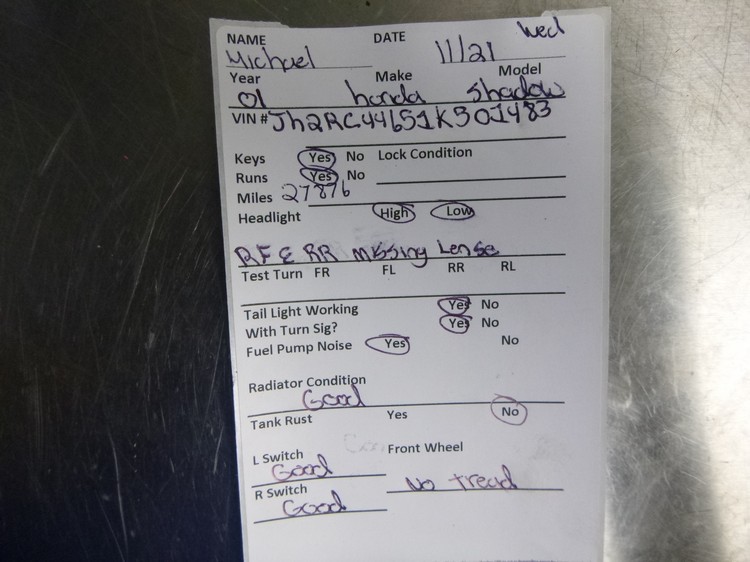 Wed
NAME Michael DATE 11/21
Year Make Model
01 honda Shadow
VIN # Jh2RC44651K501483
Keys Yes No Lock Condition
Runs Yes No
Miles 27876
Headlight High Low
RF & RR missing Lense
Test Turn FR FL RR RL
Tail Light Working Yes No
With Turn Sig? Yes No
Fuel Pump Noise Yes No
Radiator Condition
Good
Tank Rust Yes No
L Switch Front Wheel
Good
R Switch No tread
Good